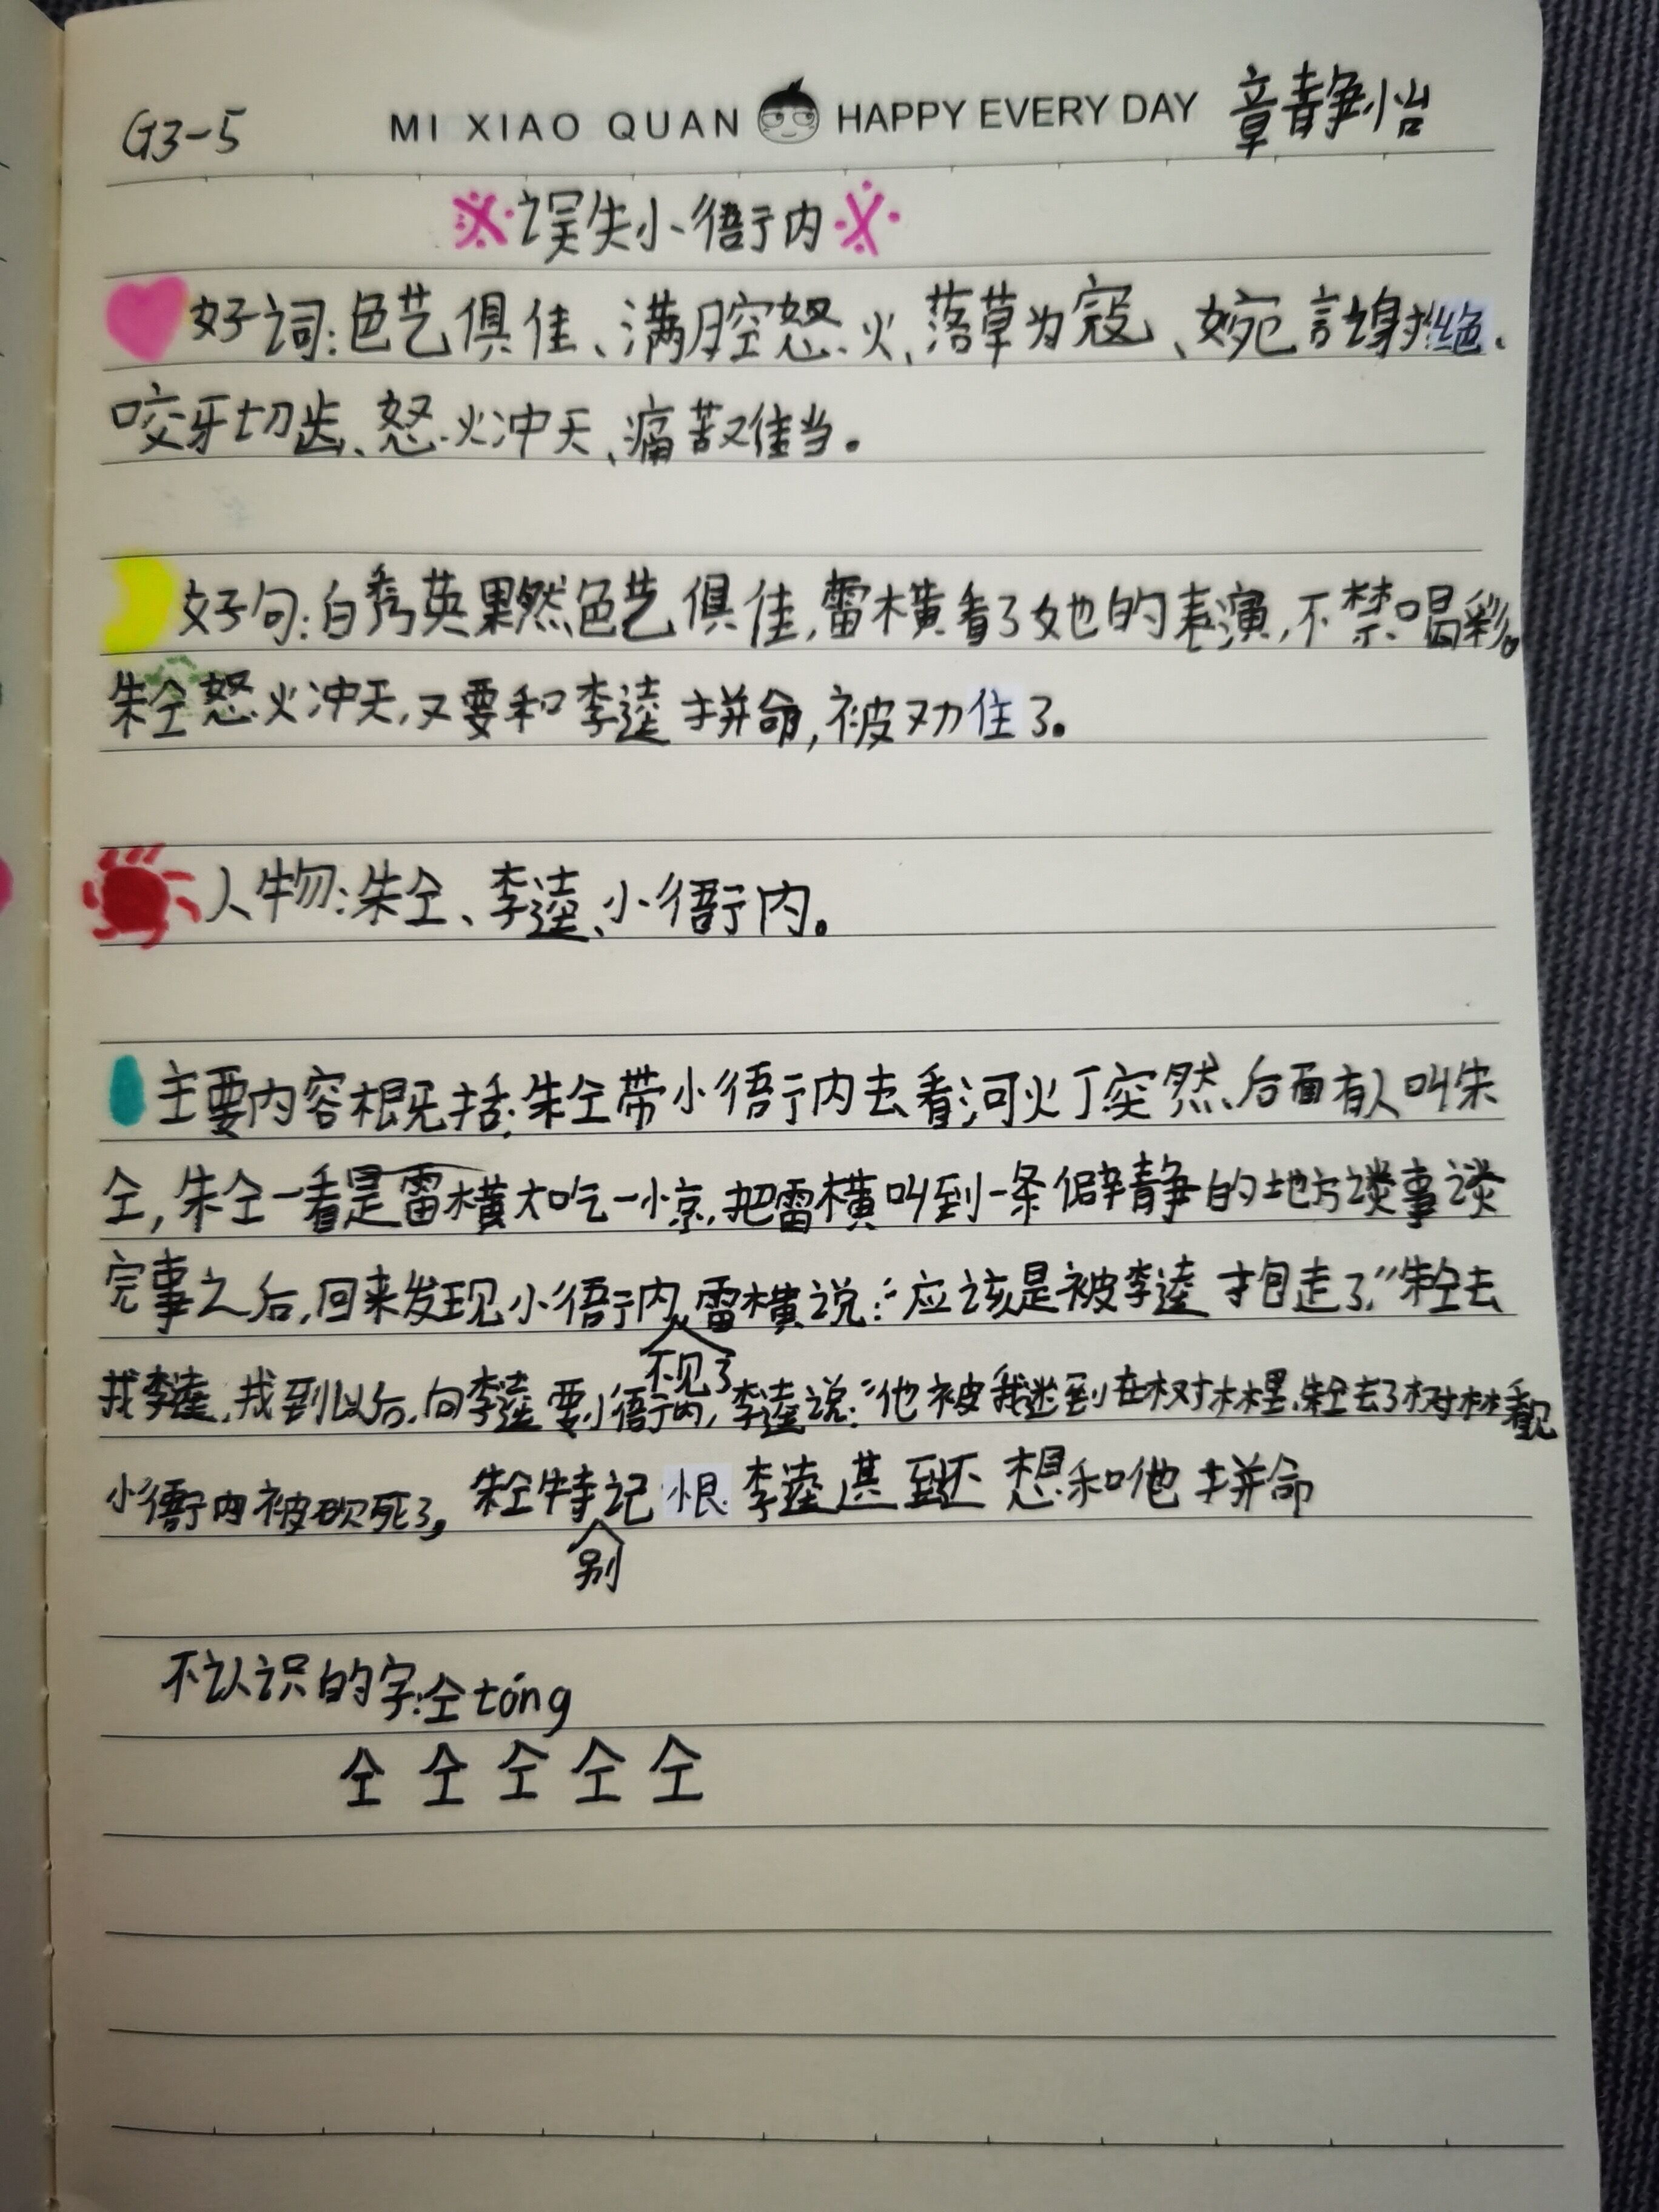 G3-5 MI XIAO QUAN HAPPY EVERY DAY 章静怡
误失小衙内
好词:色艺俱佳、满腔怒火、落草为寇、婉言谢绝、
咬牙切齿、怒火冲天、痛苦难当。
好句:白秀英果然色艺俱佳,雷横看了她的表演,不禁喝彩。
朱仝怒火冲天,又要和李逵拼命,被劝住了。
人物:朱仝、李逵、小衙内。
主要内容概括:朱仝带小衙内去看河灯突然后面有人叫朱
仝,朱仝一看是雷横大吃一惊,把雷横叫到一条僻静的地方谈事谈
完事之后,回来发现小衙内不见了雷横说:“应该是被李逵抱走了,”朱仝去
找李逵,找到以后,向李逵要小衙内,李逵说:“他被我迷到在树林里,朱仝去了树林看见
小衙内被砍死了,朱仝特别记恨李逵甚至还想和他拼命
不认识的字:仝tóng
仝 仝 仝 仝 仝